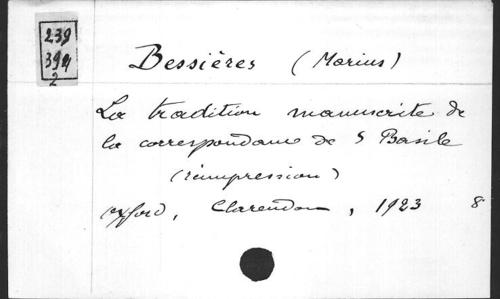 239
394
2
Bessières (Marius)
La tradition manuscrite de
la correspondance de S Basile
(réimpression)
Oxford, Clarendon, 1923 8